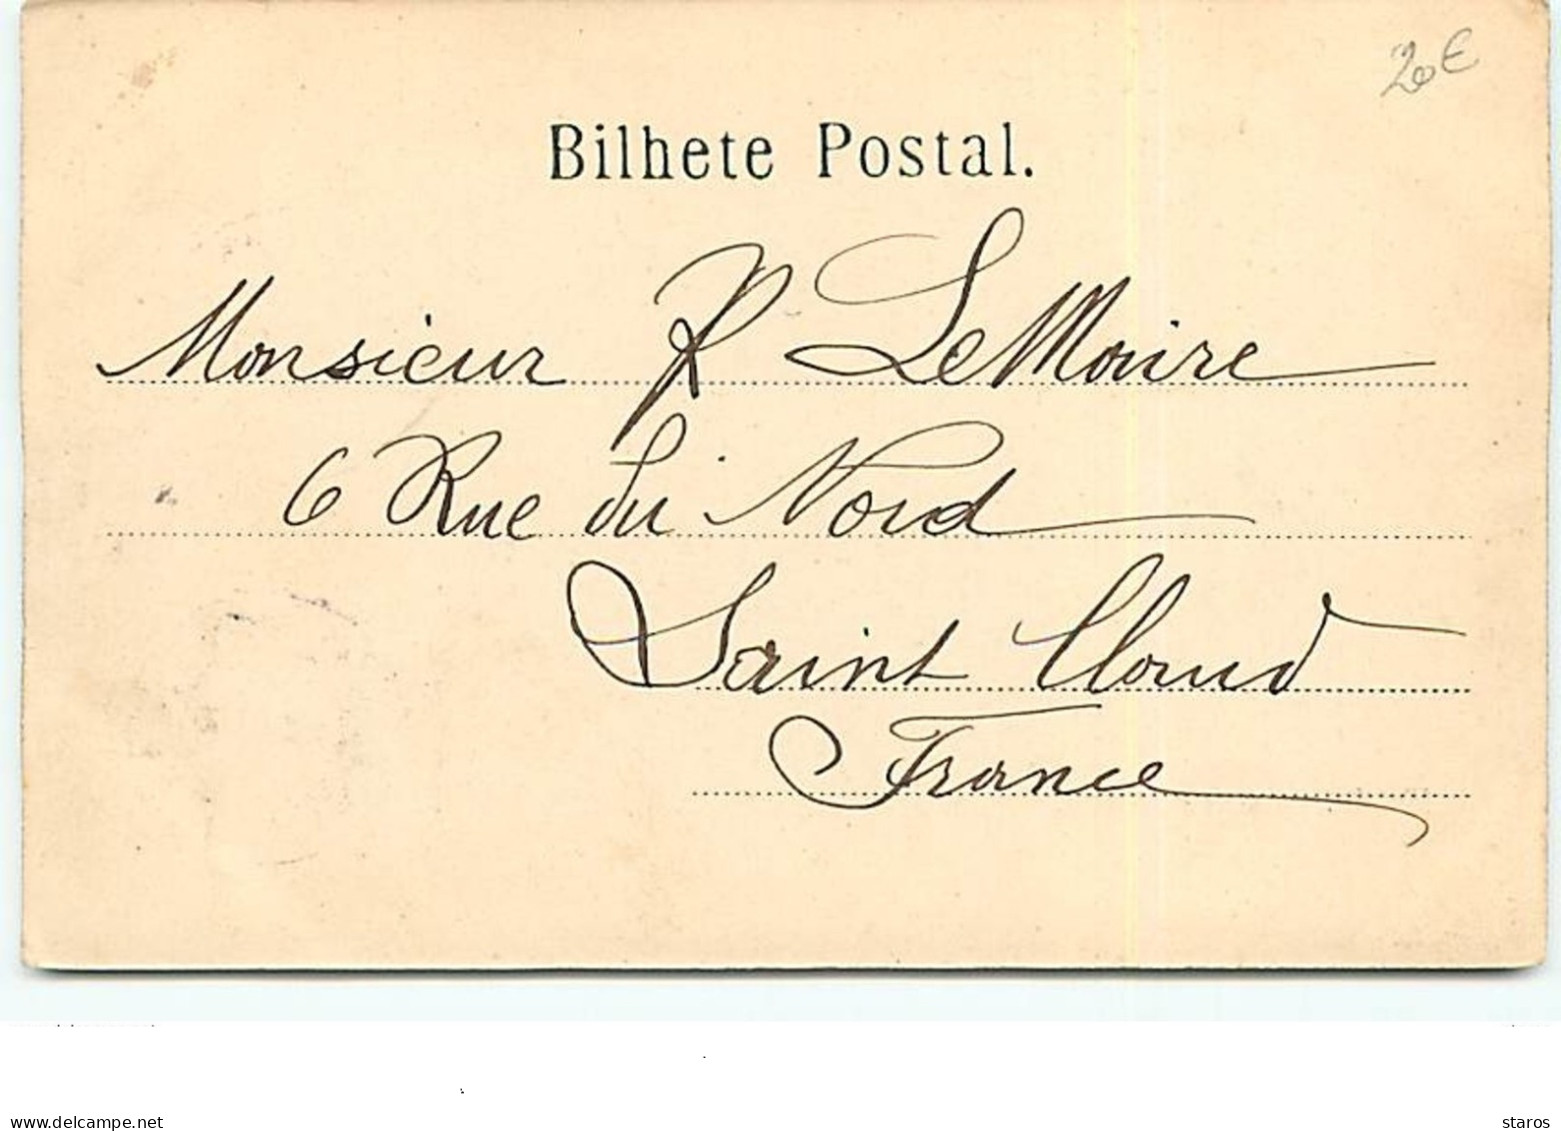 20€
Bilhete Postal.
Monsieur R LeMaire
6 Rue du Nord
Saint Cloud
France
www.delcampe.net
staros